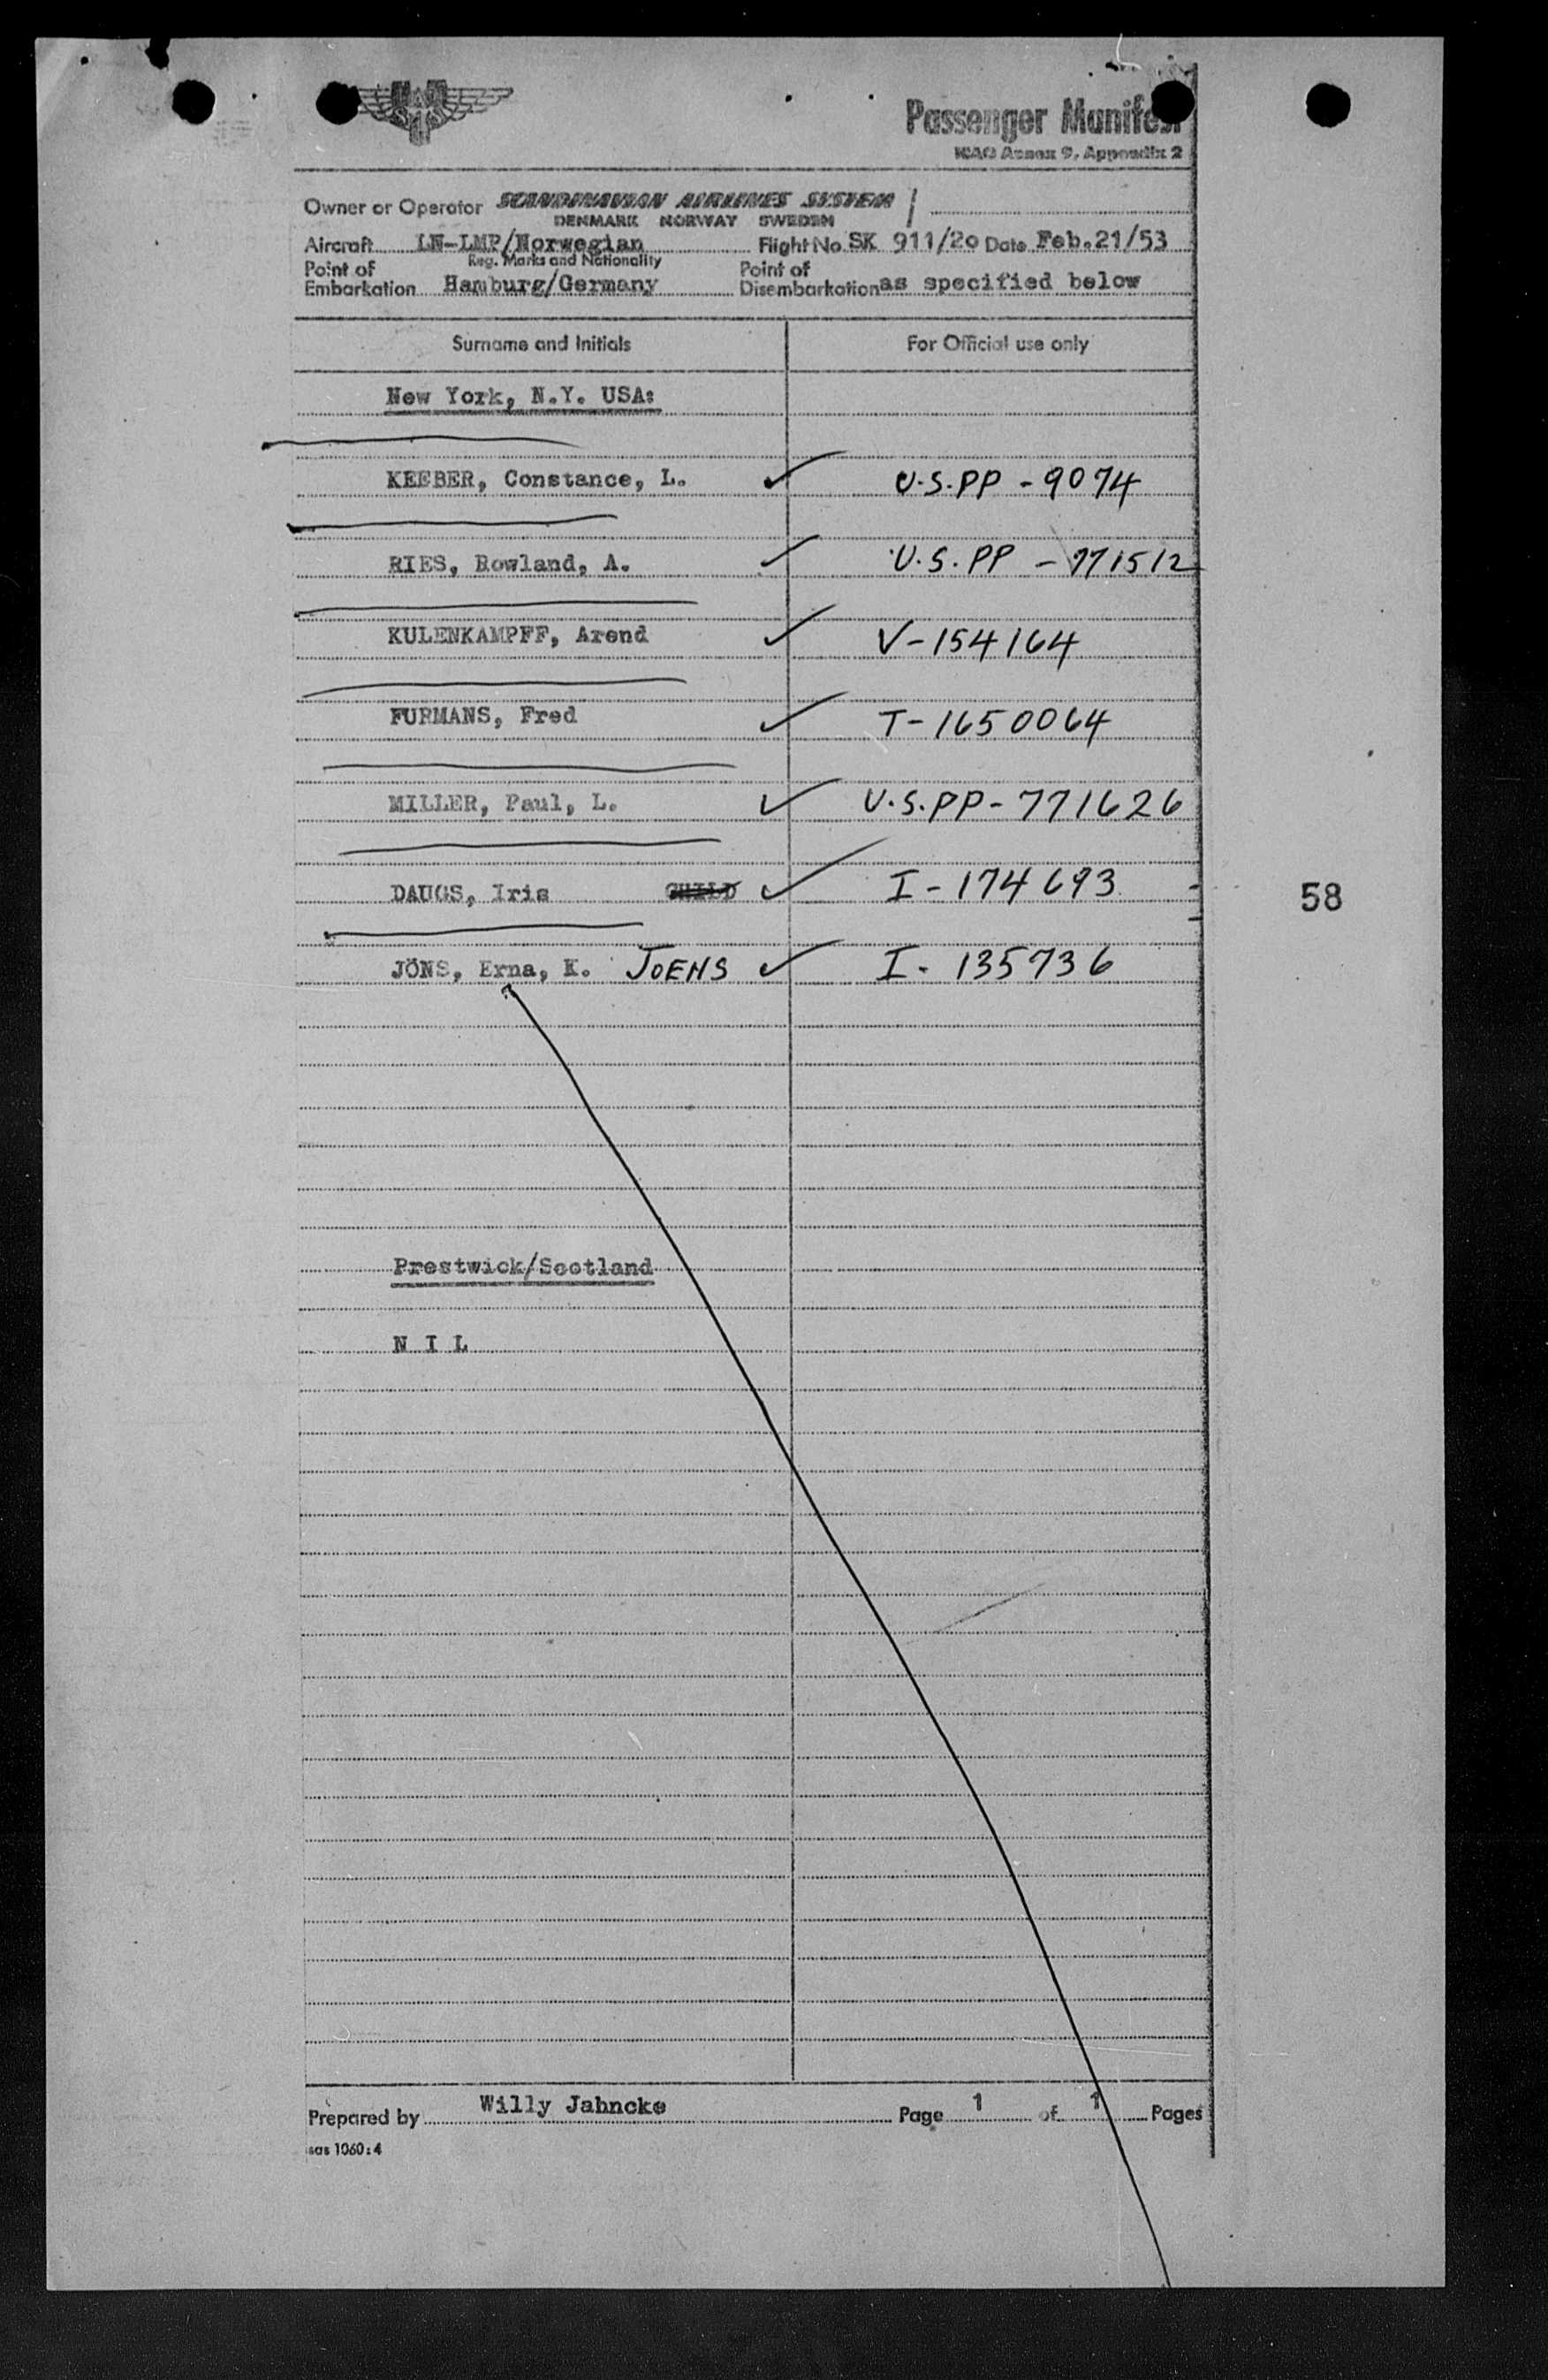 SAS
Passenger Manifest
ICAO Annex 9, Appendix 2
Owner or Operator SCANDINAVIAN AIRLINES SYSTEM
DENMARK NORWAY SWEDEN
Aircraft LN-LMP/Norwegian Flight No. SK 911/20 Date Feb.21/53
Reg. Marks and Nationality
Point of Embarkation Hamburg/Germany Point of Disembarkation as specified below
Surname and Initials For Official use only
New York, N.Y. USA:
KEEBER, Constance, L. ✓ U.S.PP - 9074
RIES, Rowland, A. ✓ U.S.PP - 771512
KULENKAMPFF, Arend ✓ V-154164
FURMANS, Fred ✓ T-1650064
MILLER, Paul, L. ✓ U.S.PP-771626
DAUGS, Iris CHILD ✓ I-174693
58
JÖNS, Erna, K. JOENS ✓ I-135736
Prestwick/Scotland
N I L
Prepared by Willy Jahncke Page 1 of 1 Pages
sas 1060:4